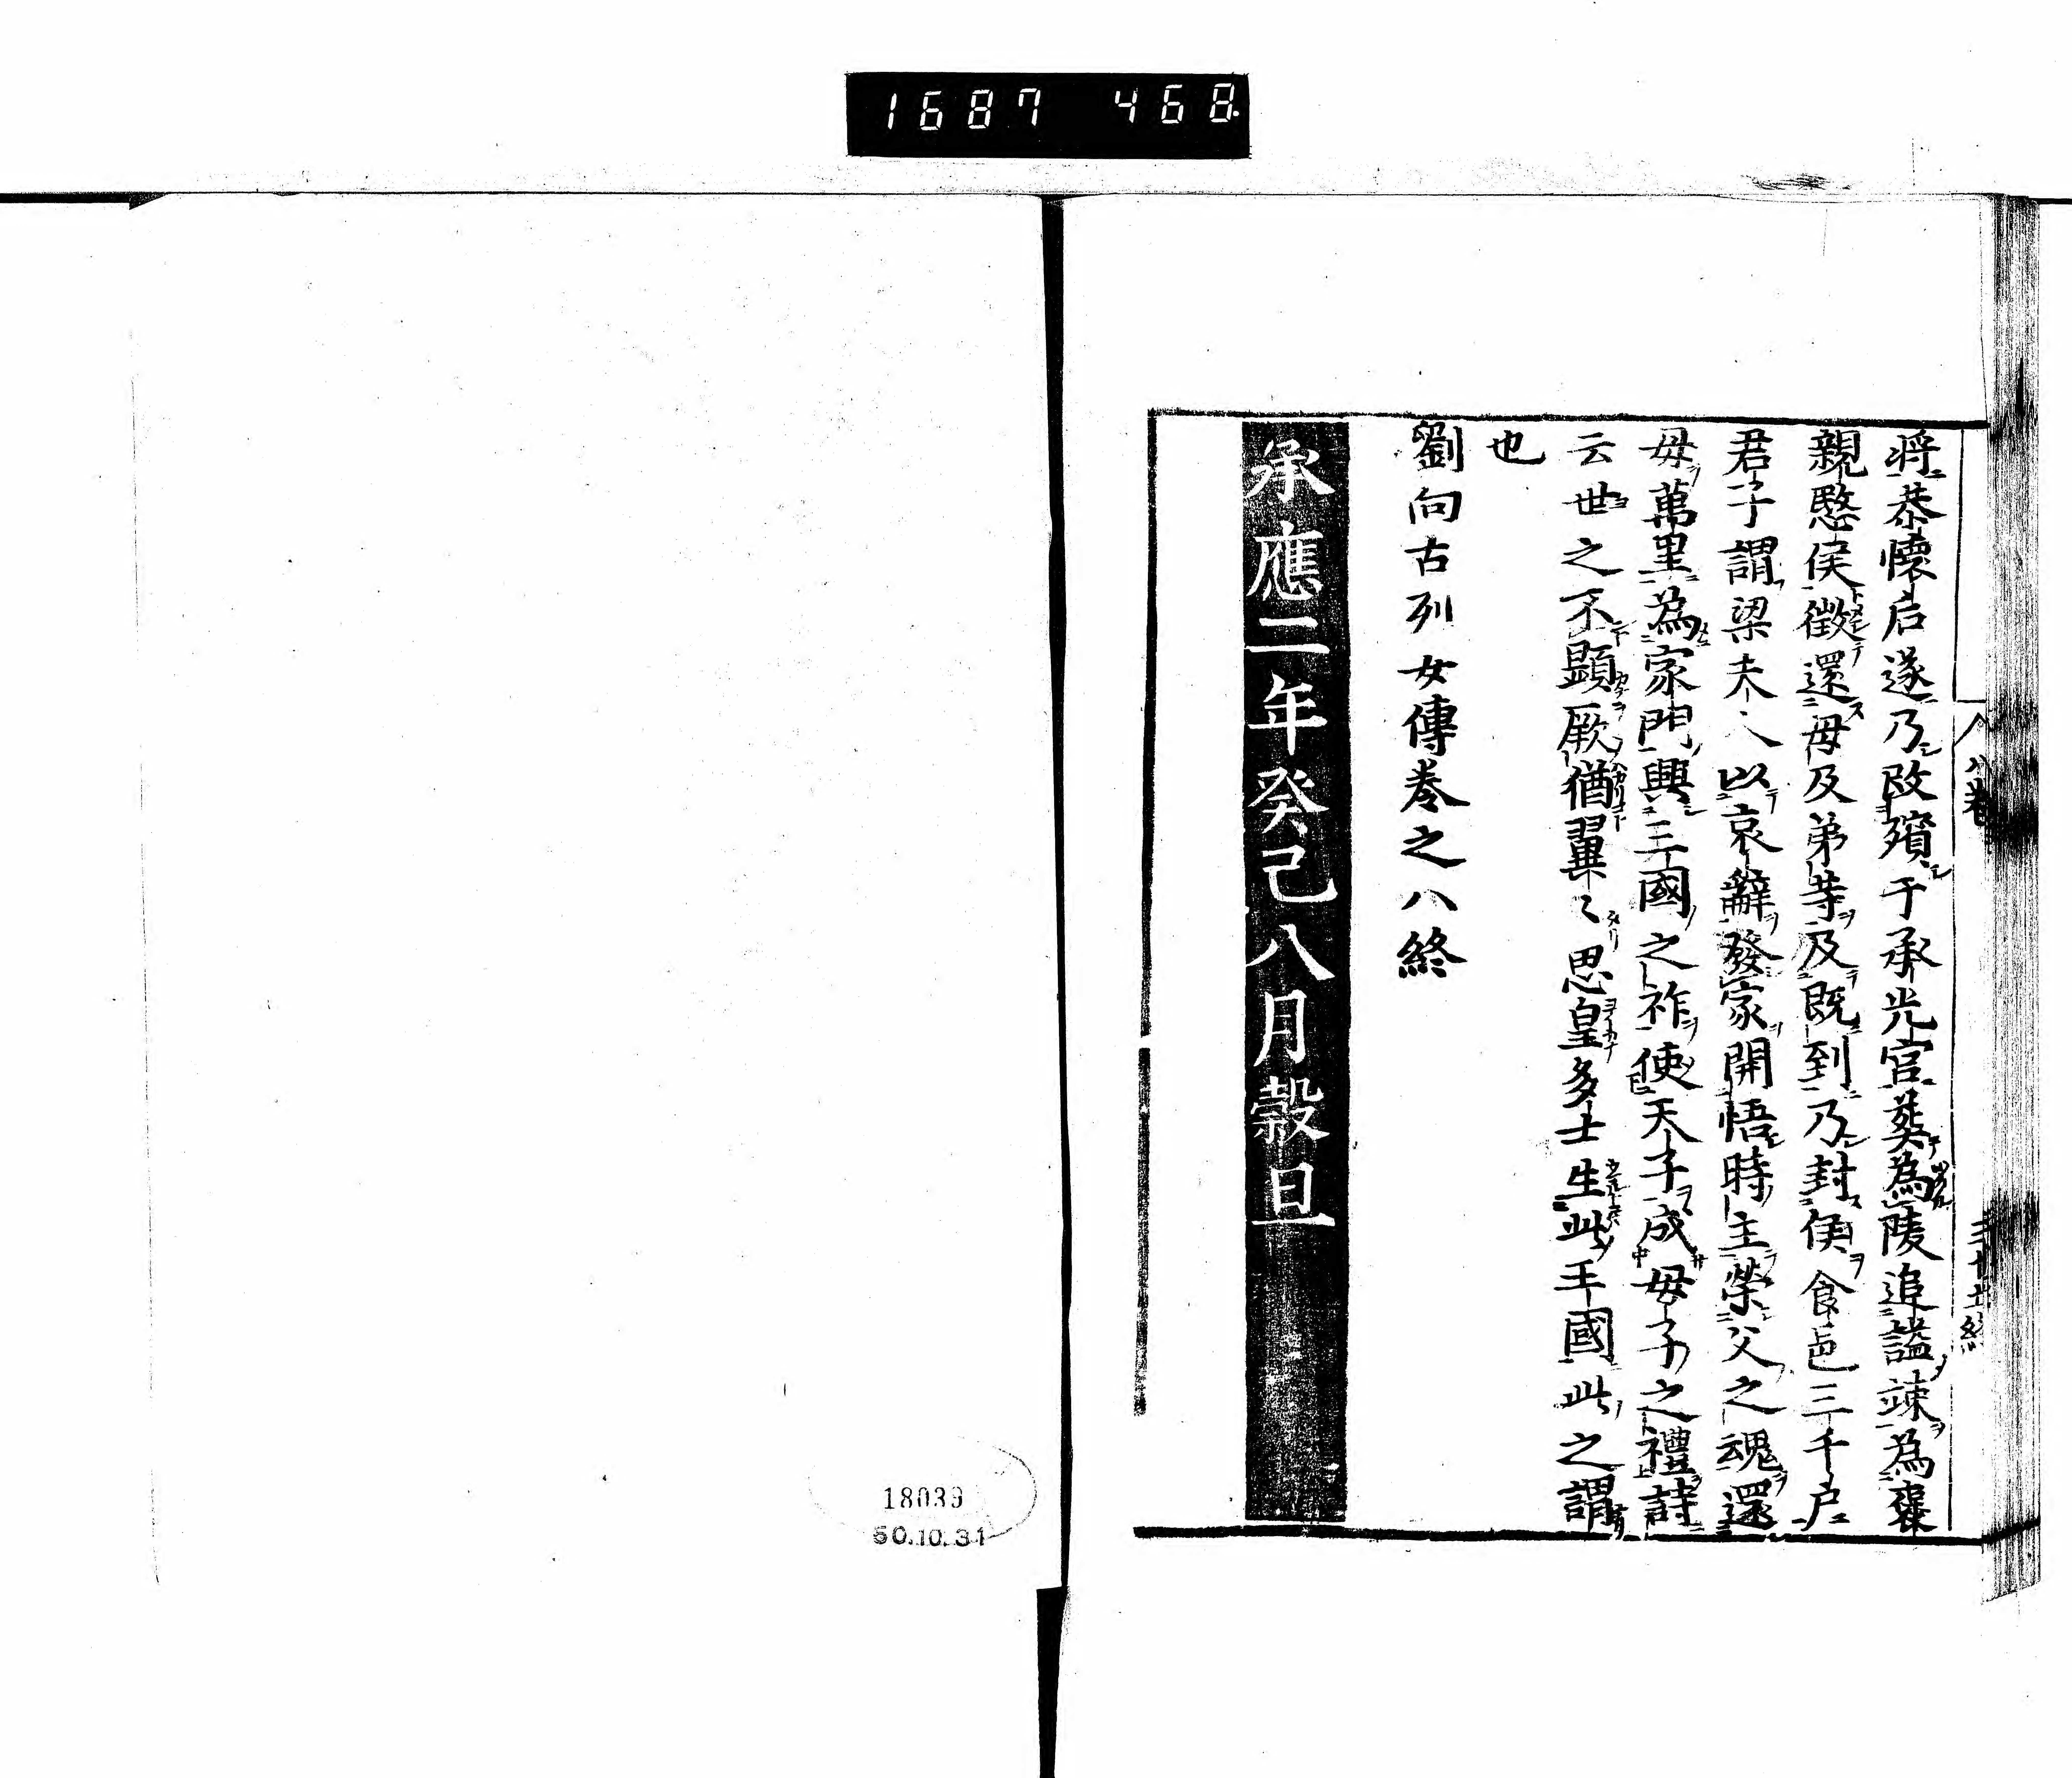 1687 468.
将恭懐后遂乃改殯于承光宮葬為陵追謚竦為褒
親愍侯徵還母及弟等及既到乃封侯食邑三千戸
君子謂梁夫人以哀辭發家開悟時主榮父之魂還
母萬里為家門興三國之祚使天子成母子之禮詩
云世之不顕厥猶翼〻思皇多士生此王國此之謂
也
劉向古列女傳巻之八終
承應二年癸己八月穀旦
18039
50.10.31